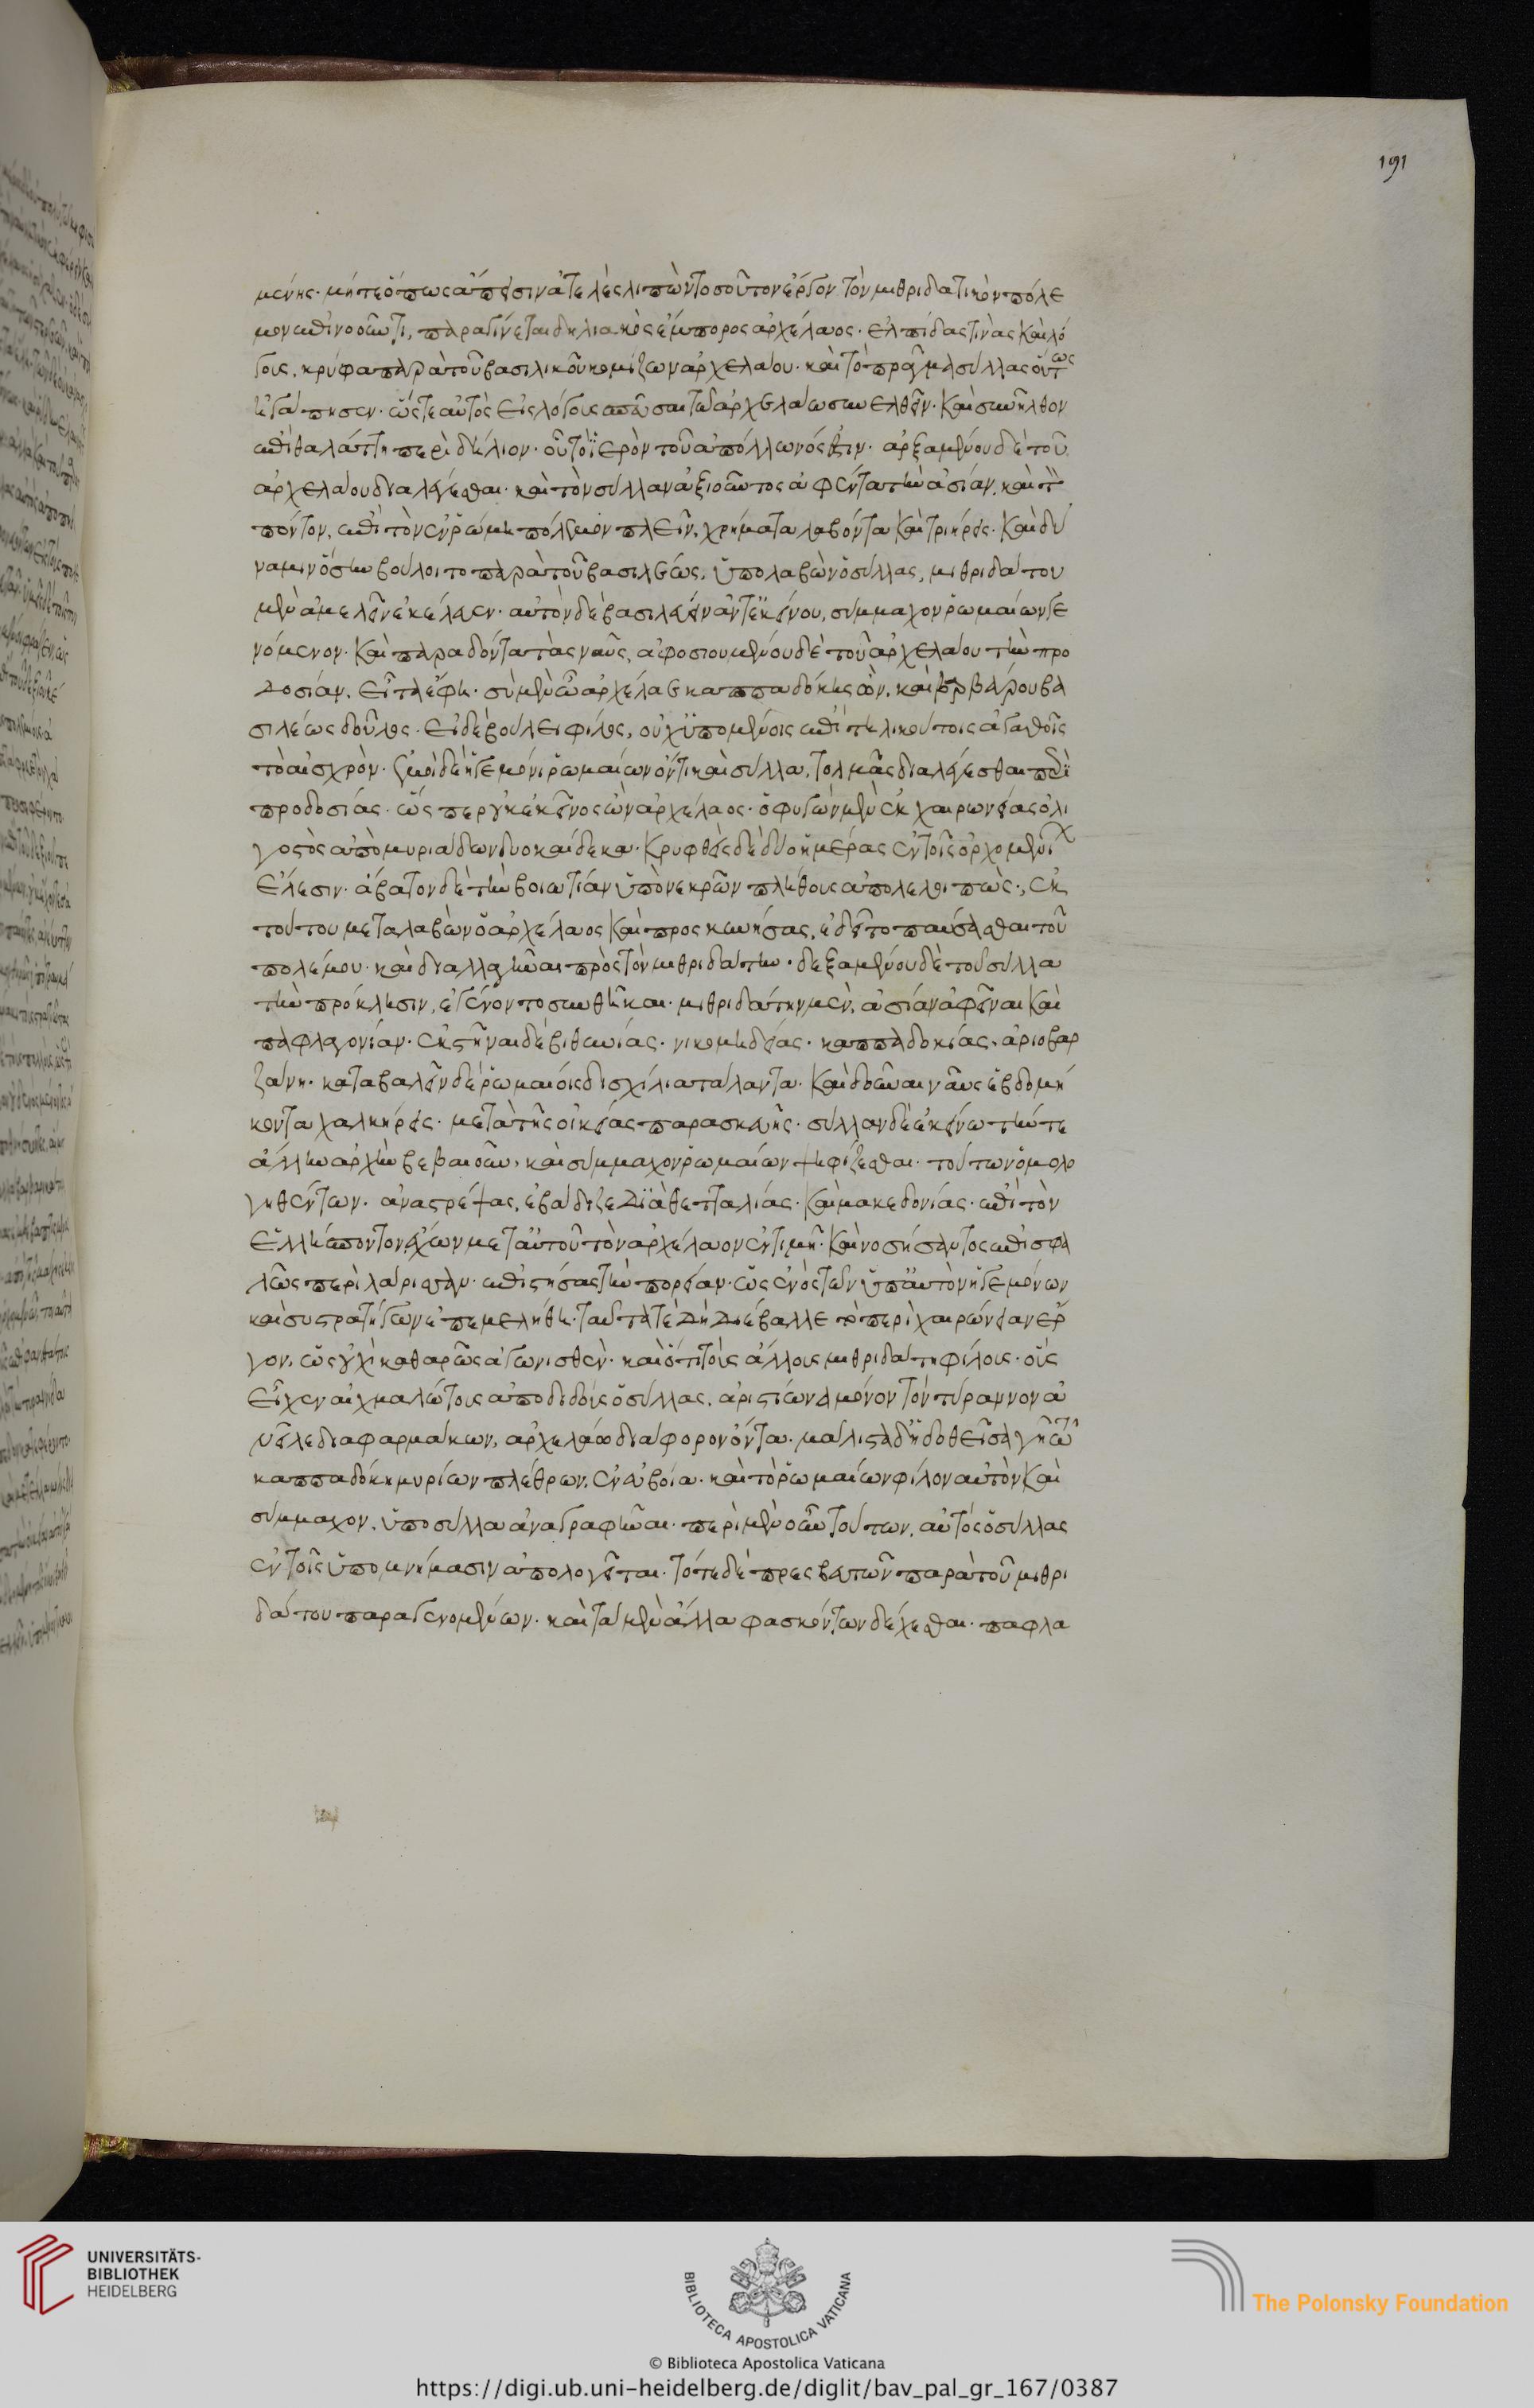 191
μένης· μήτε ὅπως ἄπεισιν ἀτελὲς λιπὼν τοσοῦτον ἔργον τὸν μιθριδατικὸν πόλε
μον ἐπινοοῦντι, παραγίνεται δηλιακὸς ἔμπορος ἀρχέλαος· ἐλπίδας τινὰς καὶ λό
γους, κρύφα παρὰ τοῦ βασιλικοῦ κομίζων ἀρχελάου· καὶ τὸ πρᾶγμα σύλλας οὕτως
ἠγάπησεν· ὥστε αὐτὸς εἰς λόγους σπεῦσαι τῷ ἀρχελάῳ συνελθεῖν· καὶ συνῆλθον
ἐπὶ θαλάττῃ περὶ δήλιον· οὗ τὸ ἱερὸν τοῦ ἀπόλλωνός ἐστιν· ἀρξαμένου δὲ τοῦ
ἀρχελάου διαλέγεσθαι· καὶ τὸν σύλλαν ἀξιοῦντος ἀφέντα τὴν ἀσίαν, καὶ τὸν
πόντον, ἐπὶ τὸν ἐν ῥώμῃ πόλεμον πλεῖν, χρήματα λαβόντα καὶ τριήρεις· καὶ δύ
ναμιν ὅσην βούλοιτο παρὰ τοῦ βασιλέως, ὑπολαβὼν ὁ σύλλας, μιθριδάτου
μὲν ἀμελεῖν ἐκέλευεν· αὐτὸν δὲ βασιλεύειν ἀντ' ἐκείνου, σύμμαχον ῥωμαίων γε
νόμενον· καὶ παραδόντα τὰς ναῦς, ἀφοσιουμένου δὲ τοῦ ἀρχελάου τὴν προ
δοσίαν, εἶτα ἔφη· σὺ μὲν ὦ ἀρχέλαε καππαδόκης ὢν, καὶ βαρβάρου βα
σιλέως δοῦλος· εἰ δὲ βούλει φίλος, οὐχ ὑπομένεις ἐπὶ τηλικούτοις ἀγαθοῖς
τὸ αἰσχρὸν· ἐμοὶ δὲ ἡγεμόνι ῥωμαίων ὄντι καὶ σύλλα, τολμᾷς διαλέγεσθαι περὶ
προδοσίας· ὥσπερ οὐκ ἐκεῖνος ὢν ἀρχέλαος· ὁ φυγὼν μὲν ἐκ χαιρωνείας ὀλι
γοστὸς ἀπὸ μυριάδων δυοκαίδεκα· κρυφθεὶς δὲ δύο ἡμέρας ἐν τοῖς ὀρχομενίοις
ἕλεσιν· ἄβατον δὲ τὴν βοιωτίαν ὑπὸ νεκρῶν πλήθους ἀπολελοιπὼς·, ἐκ
τούτου μεταλαβὼν ὁ ἀρχέλαος καὶ προσκυνήσας, ἐδεῖτο παύσασθαι τοῦ
πολέμου· καὶ διαλλαγῆναι πρὸς τὸν μιθριδάτην· δεξαμένου δὲ τοῦ σύλλα
τὴν πρόκλησιν, ἐγένοντο συνθῆκαι· μιθριδάτην μὲν, ἀσίαν ἀφεῖναι καὶ
παφλαγονίαν· ἐκστῆναι δὲ βιθυνίας· νικομηδείας· καππαδοκίας· ἀριοβαρ
ζάνη· καταβαλεῖν δὲ ῥωμαίοις δισχίλια τάλαντα· καὶ δοῦναι ναῦς ἑβδομή
κοντα χαλκήρεις· μετὰ τῆς οἰκείας παρασκευῆς· σύλλαν δὲ ἐκείνῳ τήν τε
ἄλλην ἀρχὴν βεβαιοῦν, καὶ σύμμαχον ῥωμαίων ψηφίζεσθαι· τούτων ὁμολο
γηθέντων· ἀναστρέψας, ἐβάδιζε διὰ θετταλίας· καὶ μακεδονίας· ἐπὶ τὸν
ἑλλήσποντον ἔχων μετ' αὐτοῦ τὸν ἀρχέλαον ἐν τιμῇ· καὶ νοσήσαντος ἐπισφα
λῶς περὶ λάρισσαν· ἐπιστήσας τὴν πορείαν· ὡς ἑνὸς τῶν ὑπ' αὐτὸν ἡγεμόνων
καὶ συστρατήγων ἐπεμελήθη· ταῦτά τε δὴ διέβαλλε τὸ περὶ χαιρώνειαν ἔρ
γον, ὡς οὐχὶ καθαρῶς ἀγωνισθὲν· καὶ ὅτι τοὺς ἄλλους μιθριδάτη φίλους· οὓς
εἶχεν αἰχμαλώτους ἀποδιδοὺς ὁ σύλλας, ἀριστίωνα μόνον τὸν τύραννον ἀ
νεῖλε διὰ φαρμάκων, ἀρχελάῳ διάφορον ὄντα· μάλιστα δ' ἡ δοθεῖσα γῆ τῷ
καππαδόκῃ μυρίων πλέθρων, ἐν εὐβοία· καὶ τὸ ῥωμαίων φίλον αὐτὸν καὶ
σύμμαχον, ὑπὸ σύλλα ἀναγραφῆναι· περὶ μὲν οὖν τούτων, αὐτὸς ὁ σύλλας
ἐν τοῖς ὑπομνήμασιν ἀπολογεῖται· τότε δὲ πρεσβευτῶν παρὰ τοῦ μιθρι
δάτου παραγενομένων· καὶ τὰ μὲν ἄλλα φασκόντων δέχεσθαι· παφλα
UNIVERSITÄTS-
BIBLIOTHEK
HEIDELBERG
BIBLIOTECA APOSTOLICA VATICANA
The Polonsky Foundation
© Biblioteca Apostolica Vaticana
https://digi.ub.uni-heidelberg.de/diglit/bav_pal_gr_167/0387